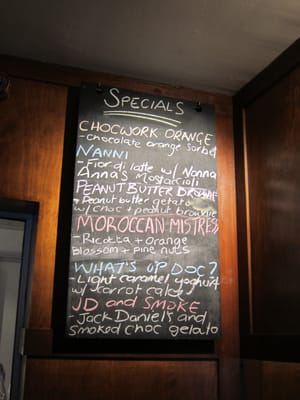 SPECIALS
CHOCWORK ORANGE
- chocolate orange sorbet
NANNI
- Fior di latte w/ Nonna
Anna's Mostaccioli
PEANUT BUTTER
- Peanut butter gelato
w/ choc + peanut brownie
MOROCCAN MISTRESS
- Ricotta + orange
blossom + pine nuts
WHAT'S UP DOC?
- Light caramel yoghurt
w/ carrot cake
JD and SMOKE
- Jack Daniels and
smoked choc gelato